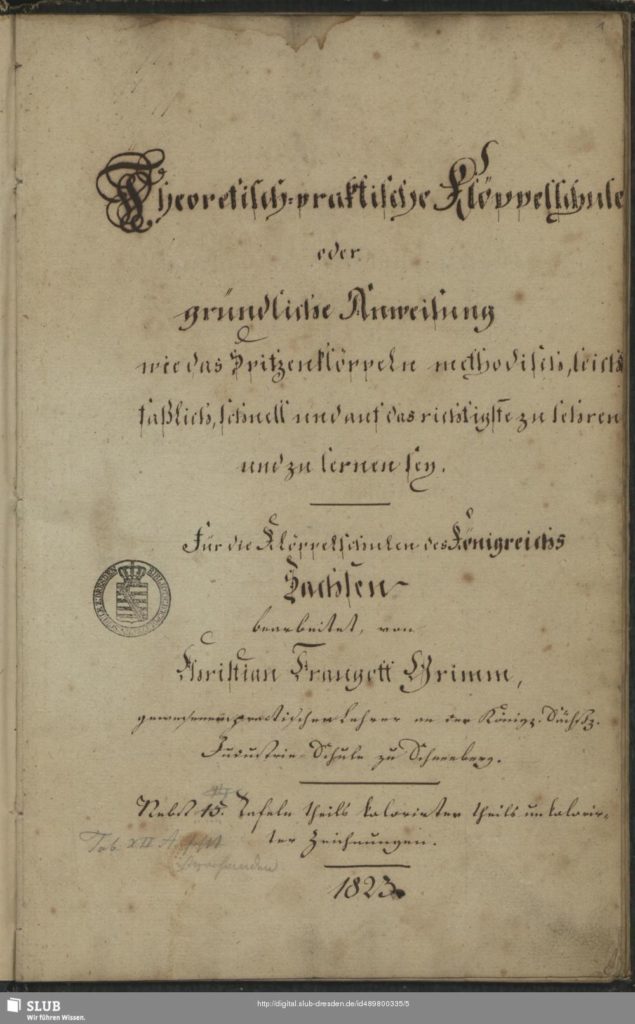 1
Theoretisch-praktische Klöppelschule
oder
gründliche Anweisung
wie das Spitzenklöppeln methodisch, leicht
faßlich, schnell und auf das richtigste zu lehren
und zu lernen sey.
Für die Klöppelschulen des Königreichs
Sachsen
bearbeitet, von
Christian Traugott Grimm,
gewesenem practischen Lehrer an der Königl. Sächß.
Industrie-Schule zu Schneeberg.
Nebst 15. Tafeln theils kolorirter theils unkolorir-
ter Zeichnungen.
Tab. XII A
1823.
SLUB
Wir führen Wissen.
http://digital.slub-dresden.de/id489800335/5